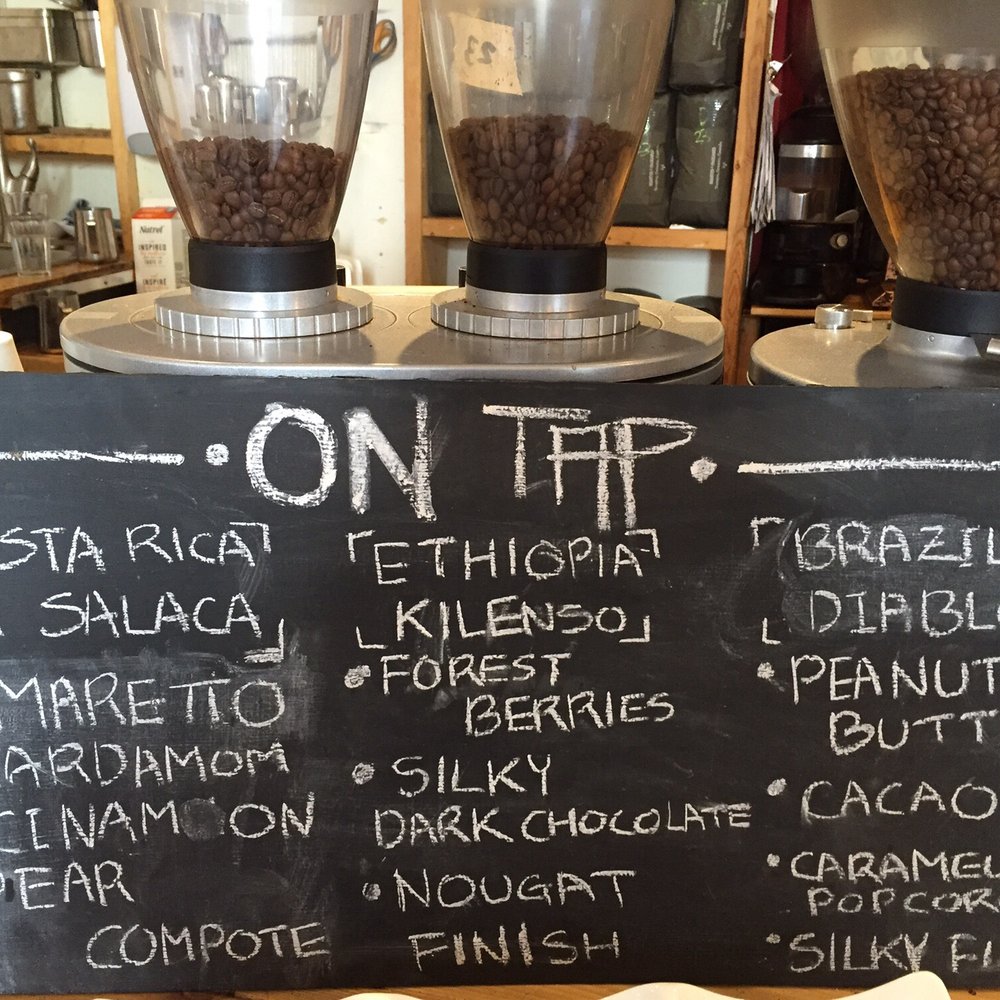 23
Nutref
INSPIRED
INSPIRE
ON TAP
STA RICA
SALACA
MARETTO
ARDAMOM
CINAMOON
PEAR
COMPOTE
ETHIOPIA
KILENSO
• FOREST
BERRIES
• SILKY
DARK CHOCOLATE
• NOUGAT
FINISH
BRAZIL
DIABL
• PEANUT
BUTT
• CACAO
• CARAMEL
POPCOR
• SILKY FI